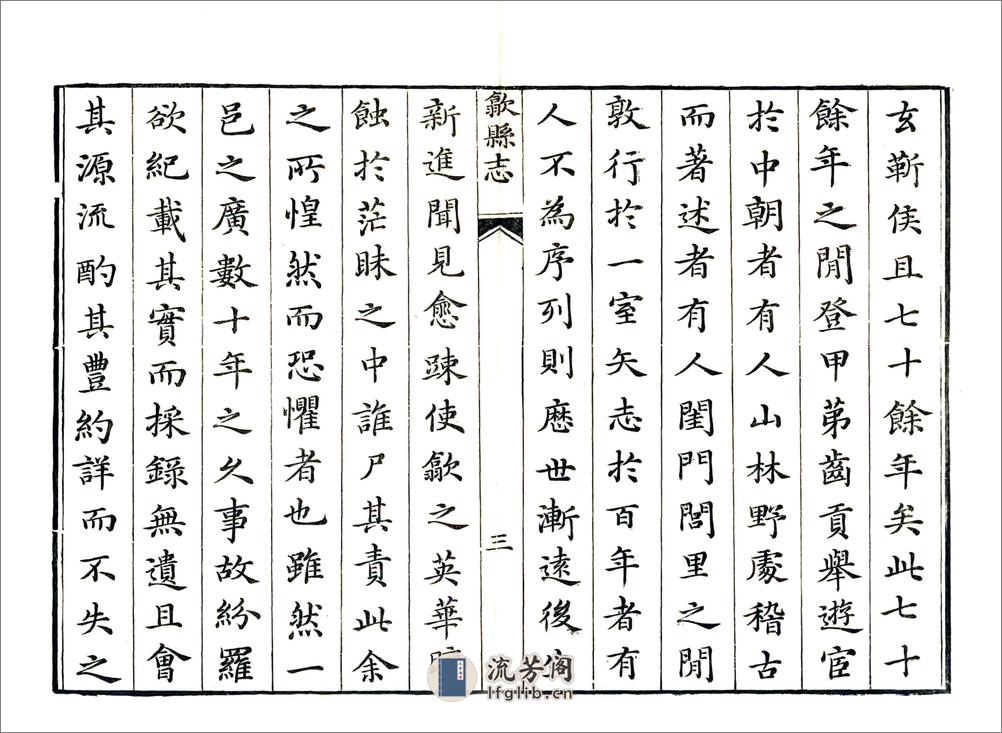 玄靳侯且七十餘年矣此七十
餘年之閒登甲苐齒貢舉遊宦
於中朝者有人山林野處稽古
而著述者有人閨門閭里之閒
敦行於一室矢志於百年者有
人不為序列則歷世漸遠後
歙縣志
三
新進聞見愈踈使歙之英華
蝕於茫昧之中誰尸其責此余
之所惶然而恐懼者也雖然一
邑之廣數十年之久事故紛羅
欲紀載其實而採錄無遺且會
其源流酌其豐約詳而不失之
流芳阁
lfglib.cn